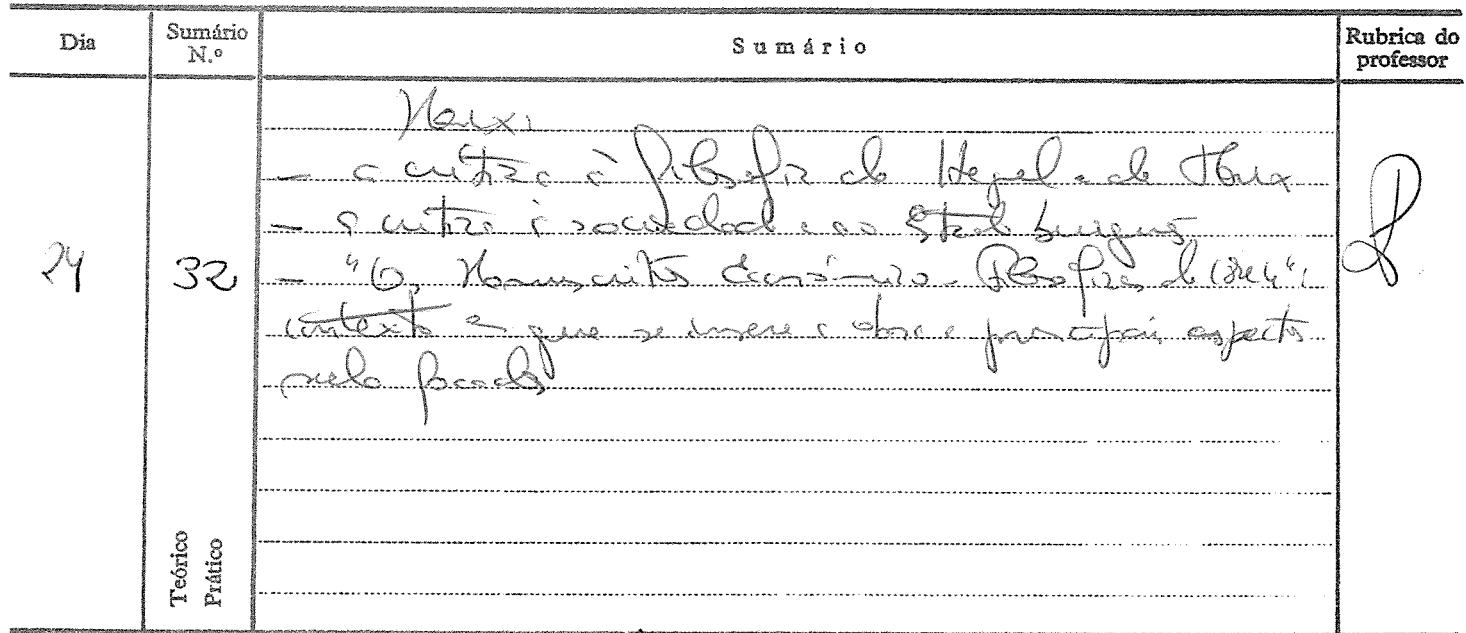 Dia
Sumário N.º
Sumário
Rubrica do professor
Marx:
- a crítica à filosofia de Hegel e de Marx
- a crítica à sociedade e ao Estado burguês
24
32
- "Os Manuscritos Económico-Filosóficos de 1844":
contexto em que se insere a obra e principais aspectos
nela focados
Teórico
Prático